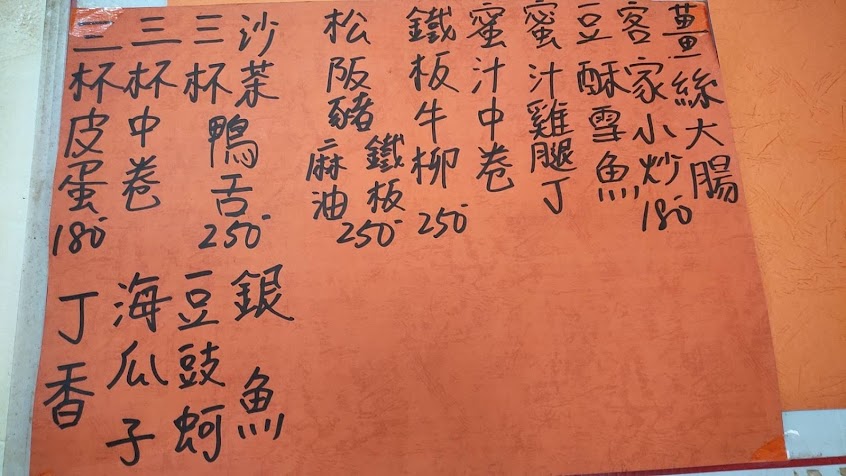 薑絲大腸
客家小炒
180
豆酥雪魚
蜜汁雞腿丁
蜜汁中卷
鐵板牛柳
250
松阪豬
鐵板
麻油
250
沙茶
三杯
鴨舌
250
三杯中卷
三杯皮蛋
180
銀魚
豆豉蚵
海瓜子
丁香